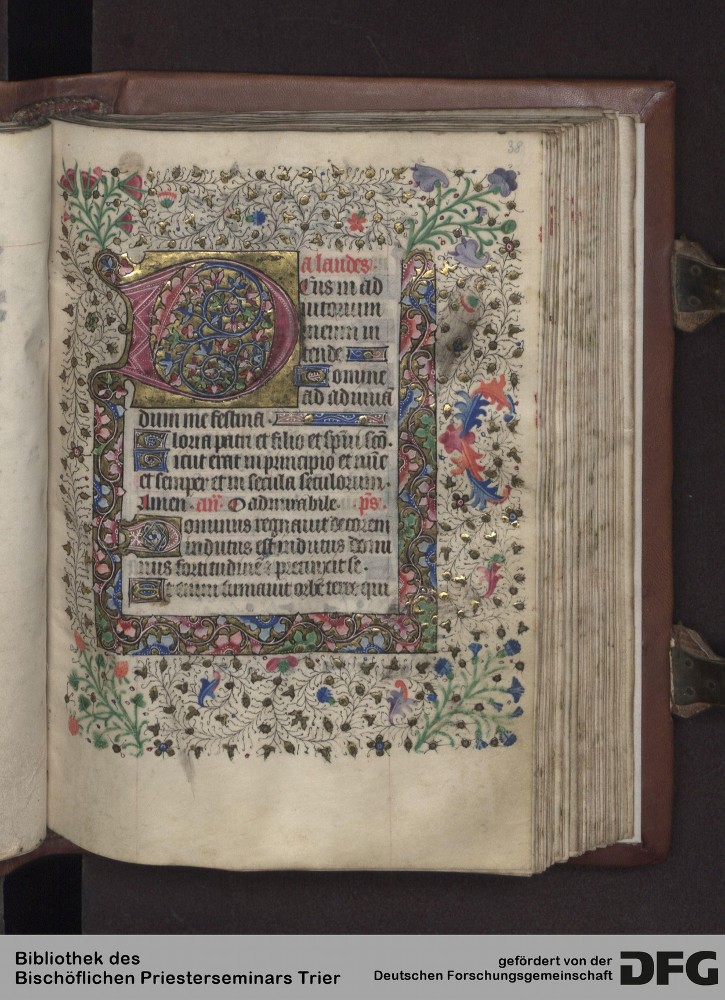 38
a laudes.
Eus in ad
iutorium
meum in
tende
Domine
ad adiuuā
dum me festina.
Gloria patri et filio et spūi scō.
Sicut erat in principio et nūc
et semper et in secula seculorum.
Amen. añ. O admirabile. p̄s.
Dominus regnauit decorem
indutus est indutus domi
nus fortitudinē z precinxit se.
Etenim firmauit orbē terre qui
Bibliothek des
Bischöflichen Priesterseminars Trier
gefördert von der
Deutschen Forschungsgemeinschaft
DFG